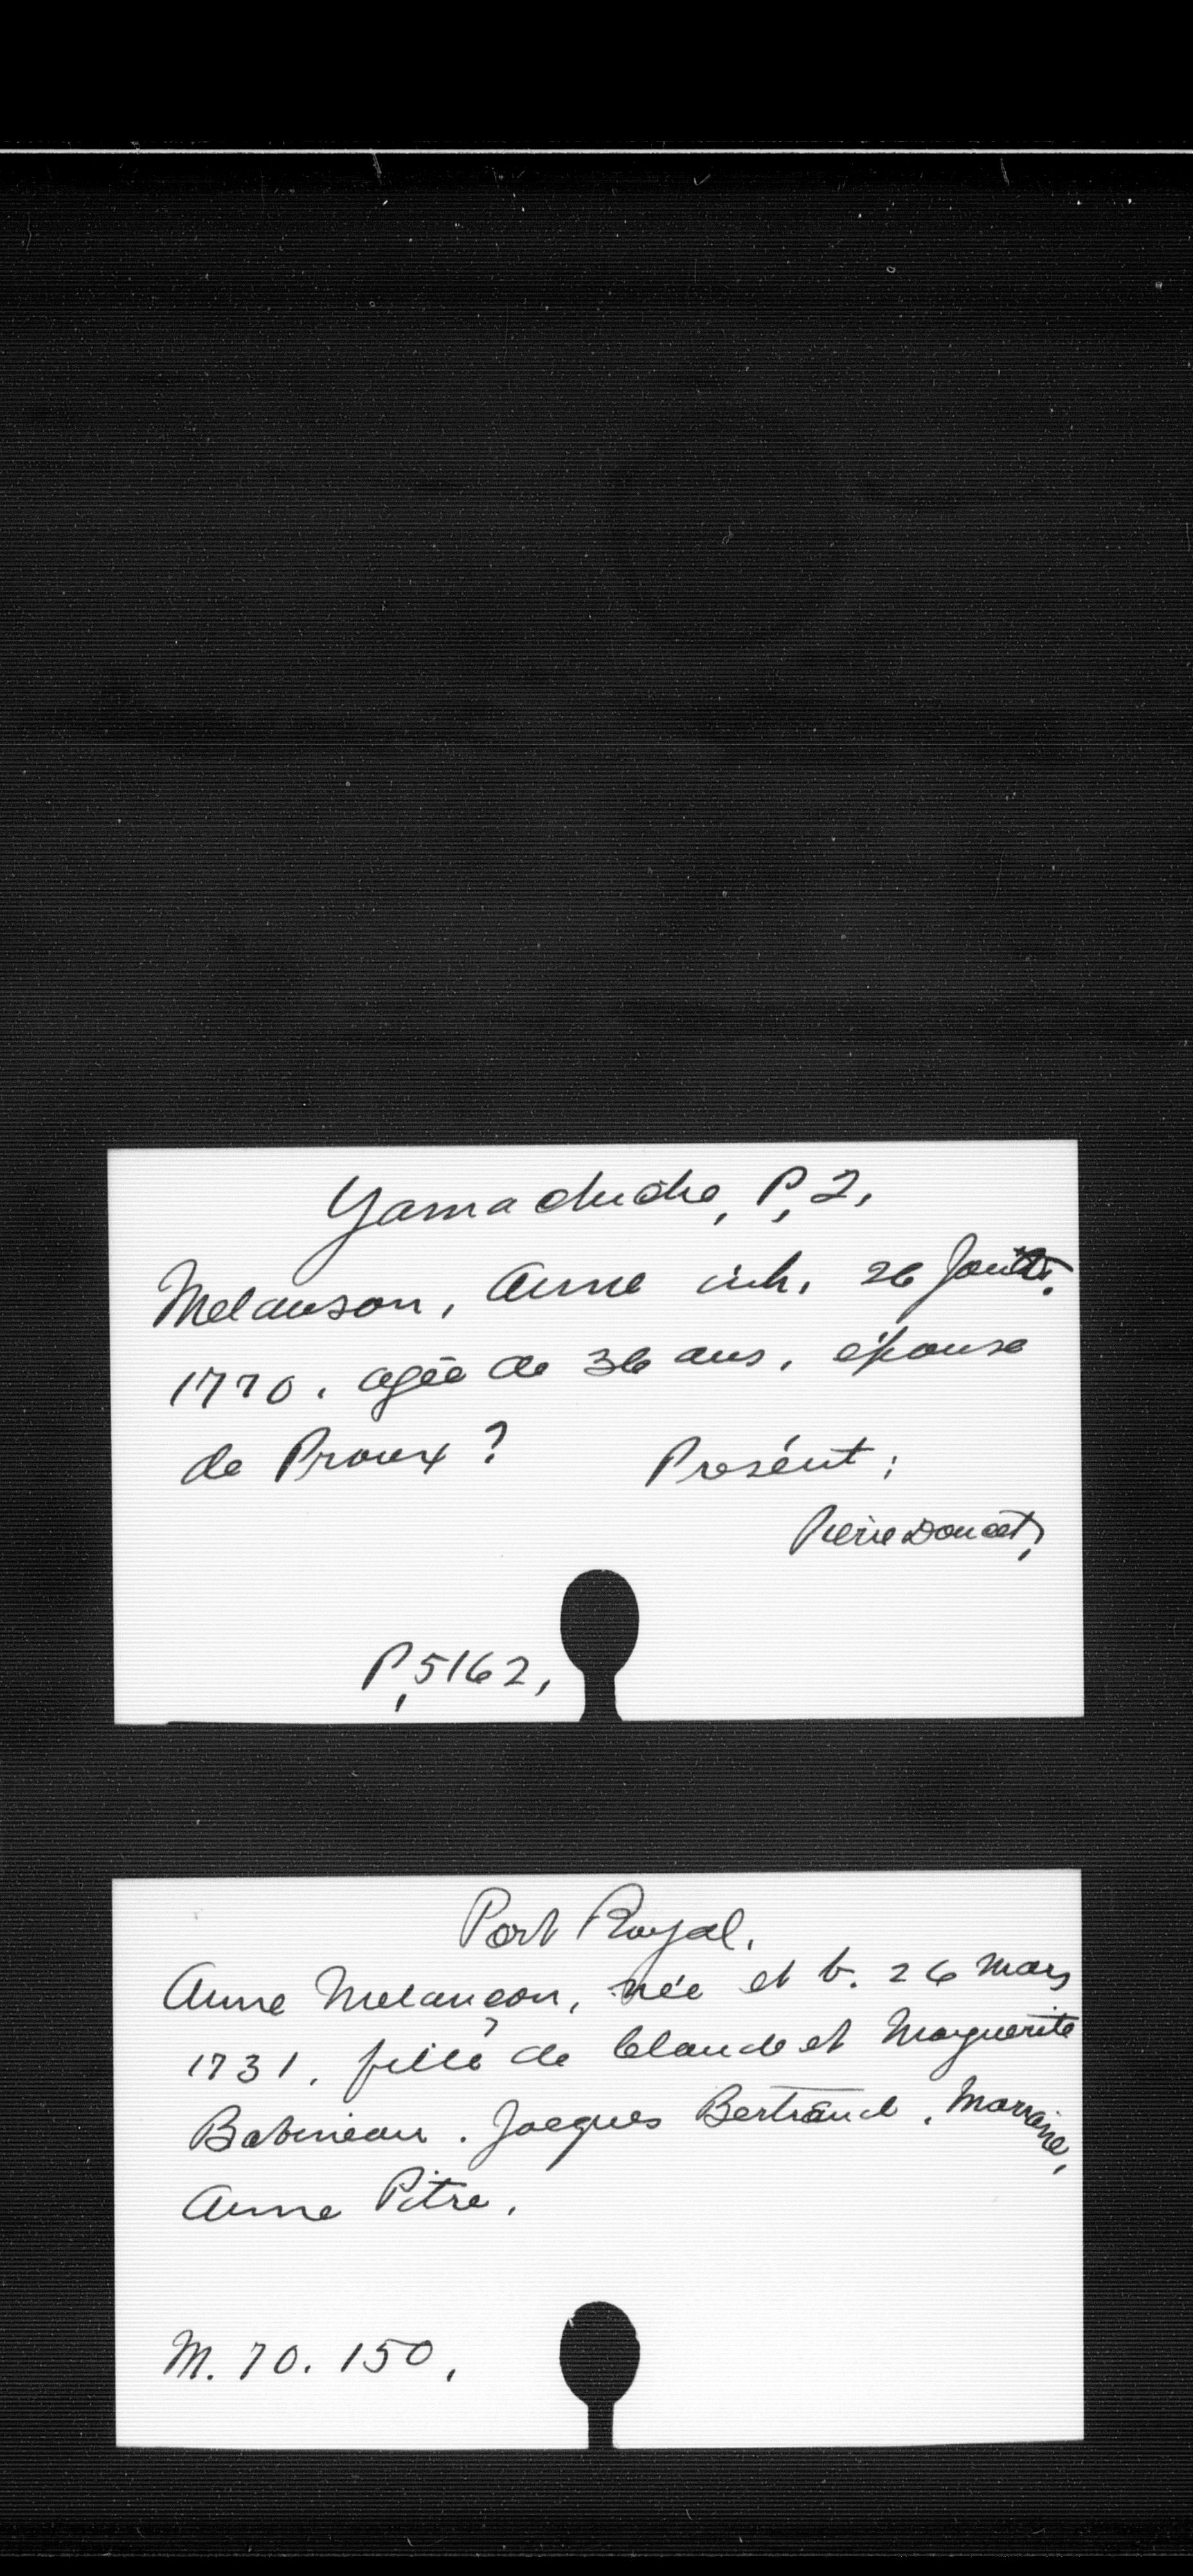 Yamachiche, P, 2,
Melanson, Anne inh, 26 Juillet.
1770. agée de 36 ans, épouse
de Proux ? Présent ;
Pierre Doucet,
P, 5162,
Port Royal.
Anne Melançon, née et b. 26 mars
1731. fille de Claude et Marguerite
Babineau. Jacques Bertrand. Marraine,
Anne Pitre.
M. 70. 150.